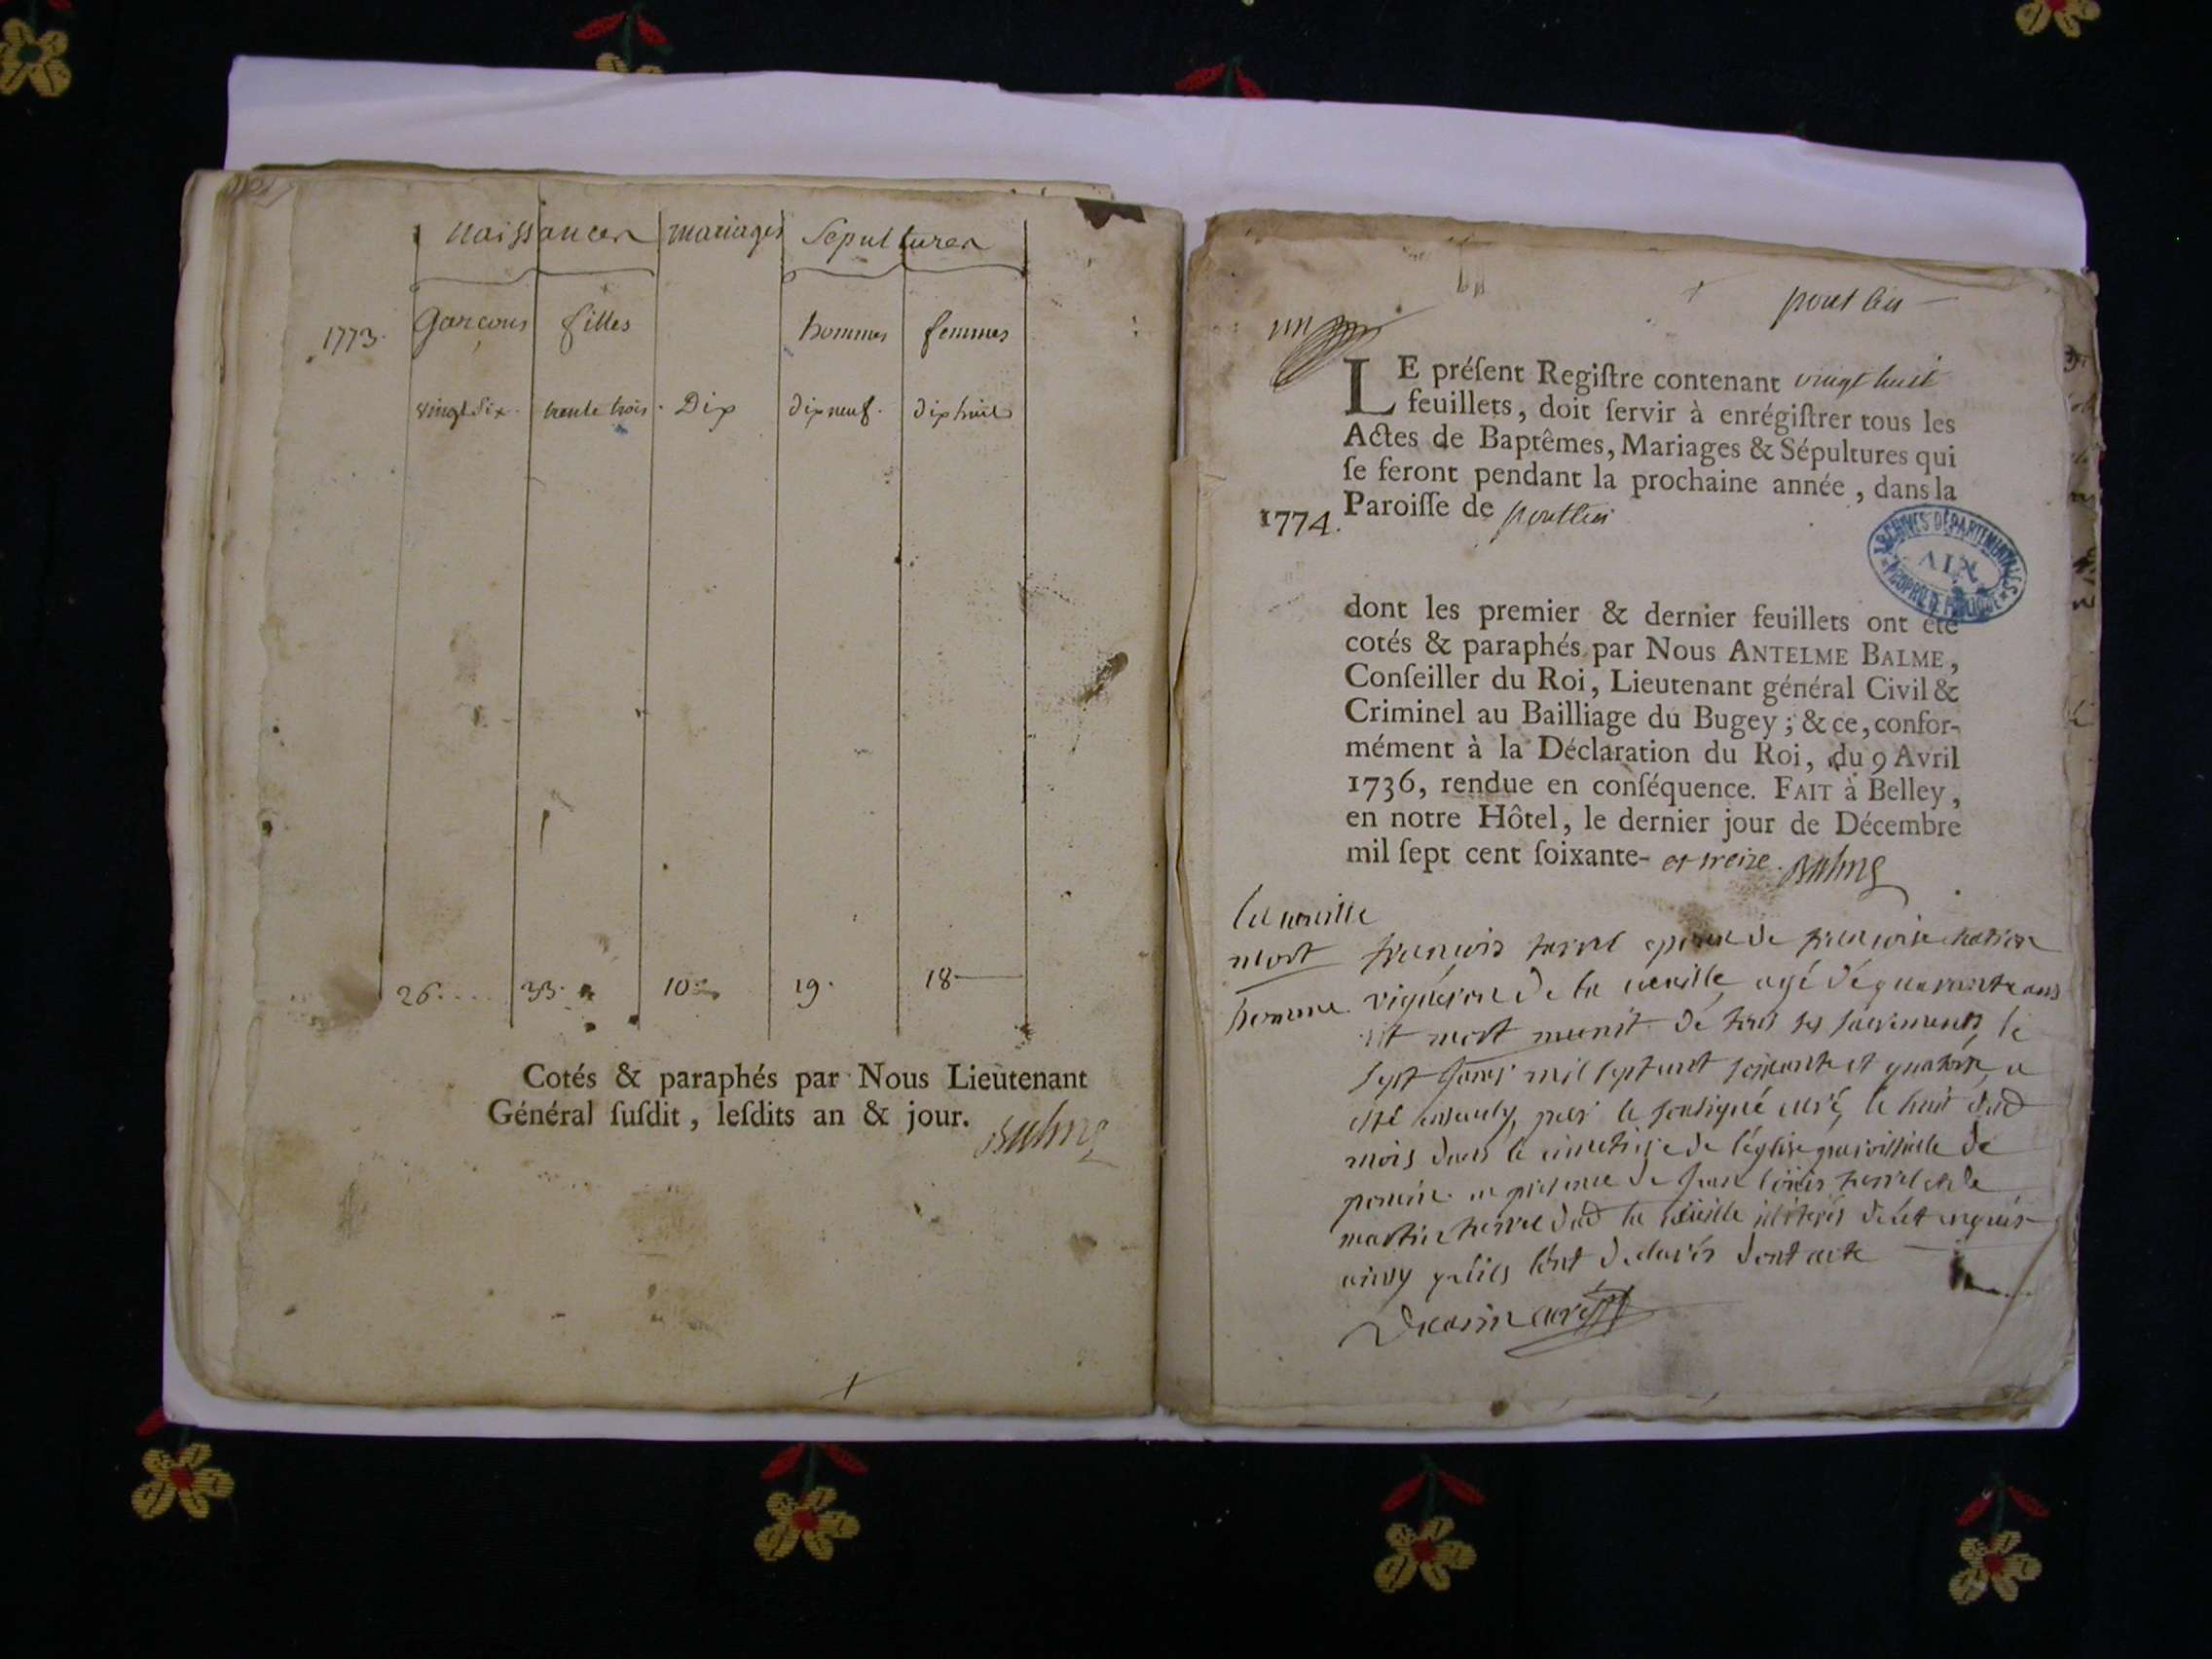 naissances mariages Sepultures
1773. Garçons filles hommes femmes
vingt Six. trente trois. Dix dix neuf. dix huit
26.... 33. 10. 19. 18
Cotés & paraphés par Nous Lieutenant
Général ſuſdit, leſdits an & jour.
Balme
un
LE préſent Regiſtre contenant vingt huit
feuillets, doit ſervir à enrégiſtrer tous les
Actes de Baptêmes, Mariages & Sépultures qui
ſe feront pendant la prochaine année, dans la
1774. Paroiſſe de
ARCHIVES DÉPARTEMENTALES
AIN
dont les premier & dernier feuillets ont été
cotés & paraphés par Nous ANTELME BALME,
Conſeiller du Roi, Lieutenant général Civil &
Criminel au Bailliage du Bugey; & ce, confor-
mément à la Déclaration du Roi, du 9 Avril
1736, rendue en conſéquence. FAIT à Belley,
en notre Hôtel, le dernier jour de Décembre
mil ſept cent ſoixante- et treize. Balme
mort
homme
françois epoux de françoise
vigneron de la agé de quarante ans
est mort munit de tous ses sacrements, le
sept mil sept cent soixante et quatorze, a
esté par le soussigné curé, le huit dud
mois dans le cimetiere de l'église paroissialle de
en presence de Jean loüis et de
martin dud la de ce enquis
ainsy qu'ils l'ont declarés dont acte
curé